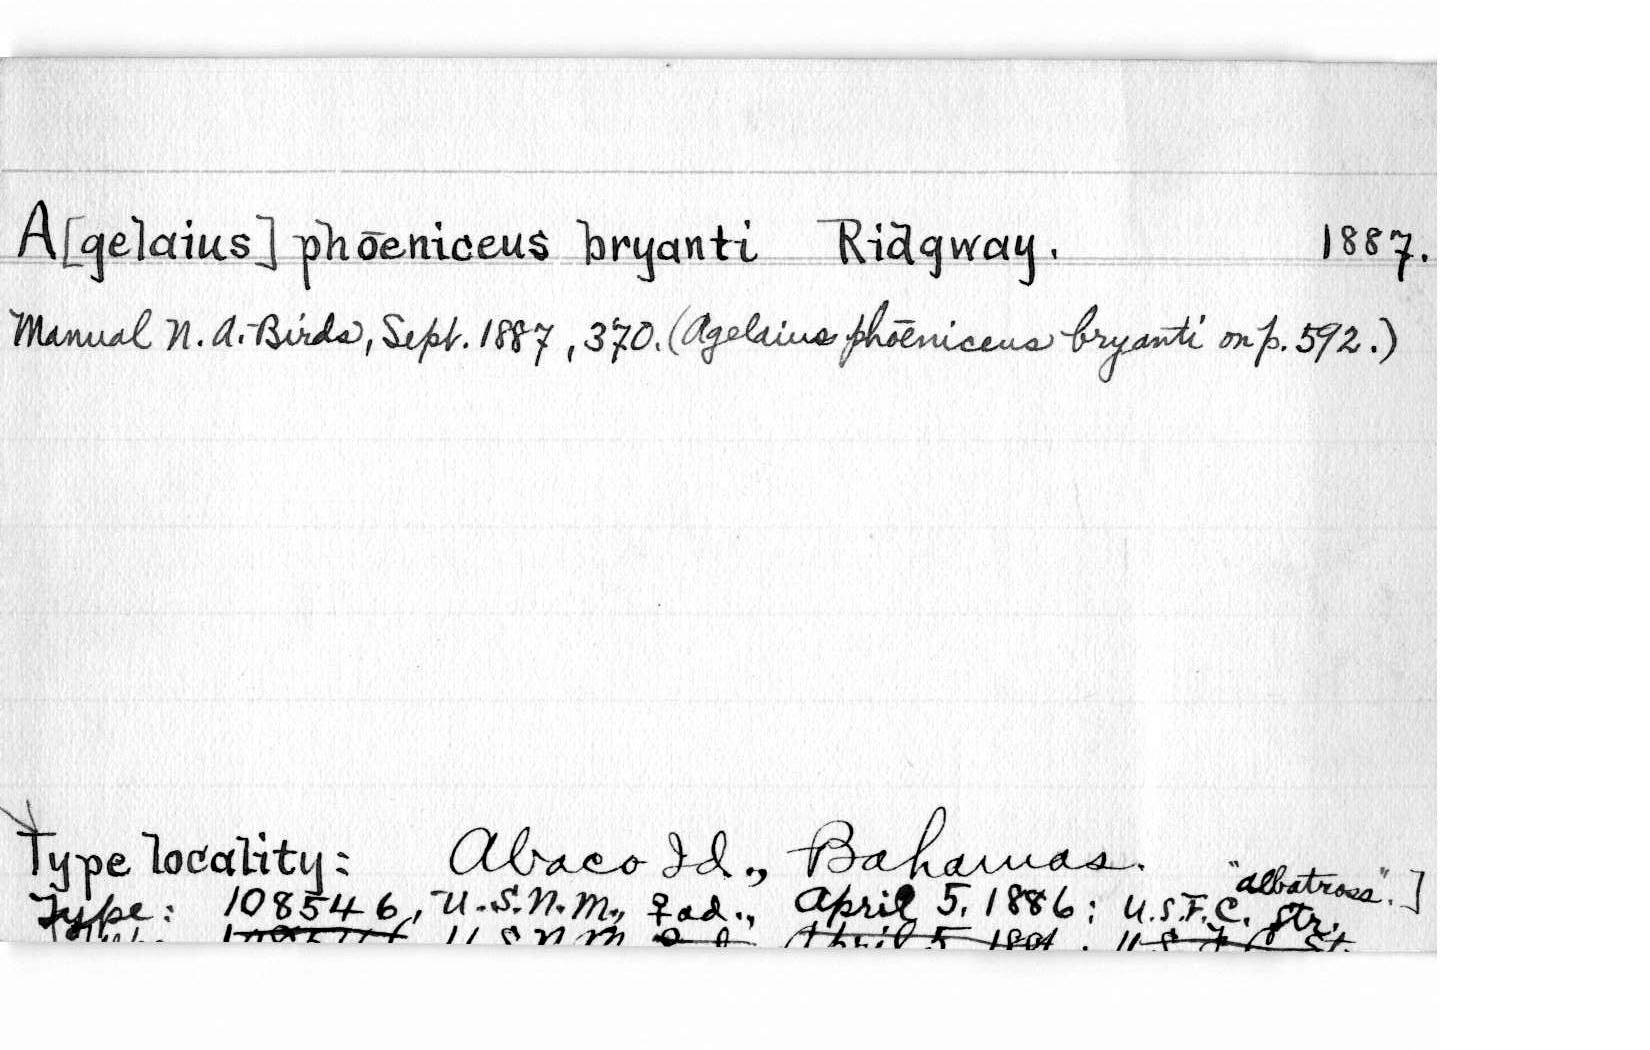 A[gelaius] phōeniceus bryanti Ridgway. 1887.
Manual N. A. Birds, Sept. 1887, 370. (Agelaius phōeniceus bryanti on p. 592.)
Type locality: Abaco Id., Bahamas.
Type: 108546, U.S.N.M., ♀ ad., April 5, 1886; U.S.F.C. Str. "Albatross".]